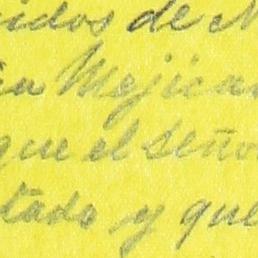 idos de M
ia Mejican
que el Seño
tado y que